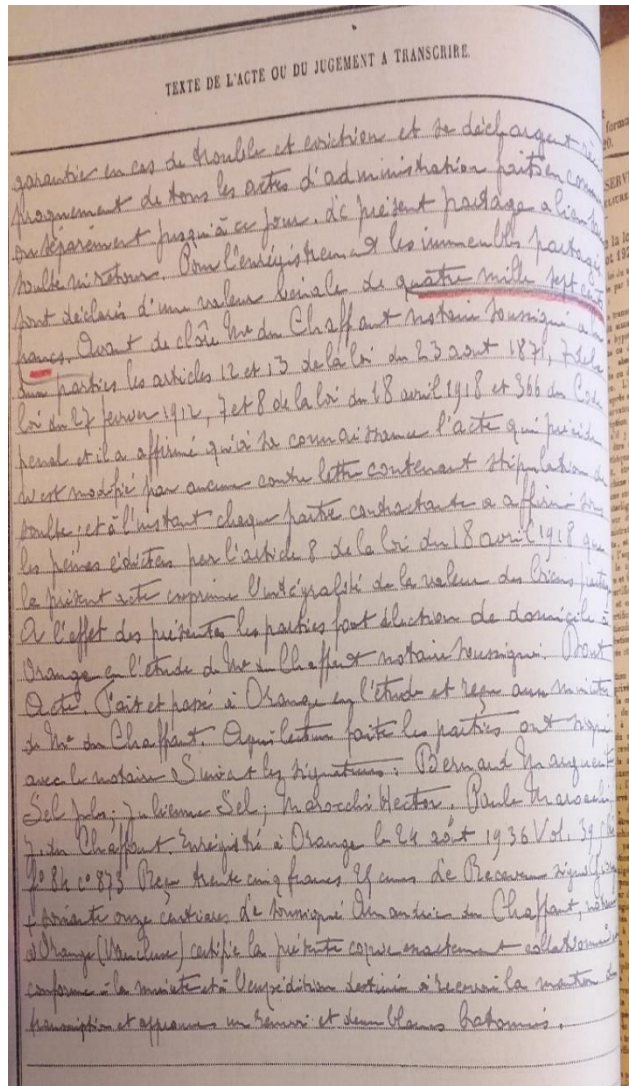 TEXTE DE L'ACTE OU DU JUGEMENT A TRANSCRIRE
garantie en cas de trouble et eviction et se déchargent réci
proquement de tous les actes d'administration faits en commun
ou séparément jusqu'à ce jour. Le présent partage a lieu sans
soulte ni retour. Pour l'enregistrement les immeubles partagés
sont déclarés d'une valeur vénale de quatre mille sept cents
francs. Avant de clore Me du Chaffaut notaire soussigné a lu
aux parties les articles 12 et 13 de la loi du 23 aout 1871, 7 de la
loi du 27 fevrier 1912, 7 et 8 de la loi du 18 avril 1918 et 366 du Code
penal et il a affirmé qu'à sa connaissance l'acte qui précède
n'est modifié par aucune contre lettre contenant stipulation de
soulte; et à l'instant chaque partie contractante a affirmé sous
les peines édictées par l'article 8 de la loi du 18 avril 1918 que
le présent acte exprime l'intégralité de la valeur des biens partagés
A l'effet des présentes les parties font élection de domicile à
Orange en l'étude de Me du Chaffaut notaire soussigné. Dont
Acte. Fait et passé à Orange en l'étude et reçu aux minutes
de Me du Chaffaut. Après lecture faite les parties ont signé
avec le notaire Suivent les signatures: Bernard Marguerite
Sel; Julienne Sel; Marocchi Hector. Paule Marocchi
du Chaffaut. Enregistré à Orange le 24 août 1936 Vol. 39
f° 84 c° 873 Reçu trente cinq francs Le Receveur signé
soixante onze centiares Le soussigné du Chaffaut, notaire
à Orange (Vaucluse) certifie la présente copie exactement collationnée
conforme à la minute et à l'expédition destinée à recevoir la mention de
transcription et approuve un renvoi et deux blancs batonnés.